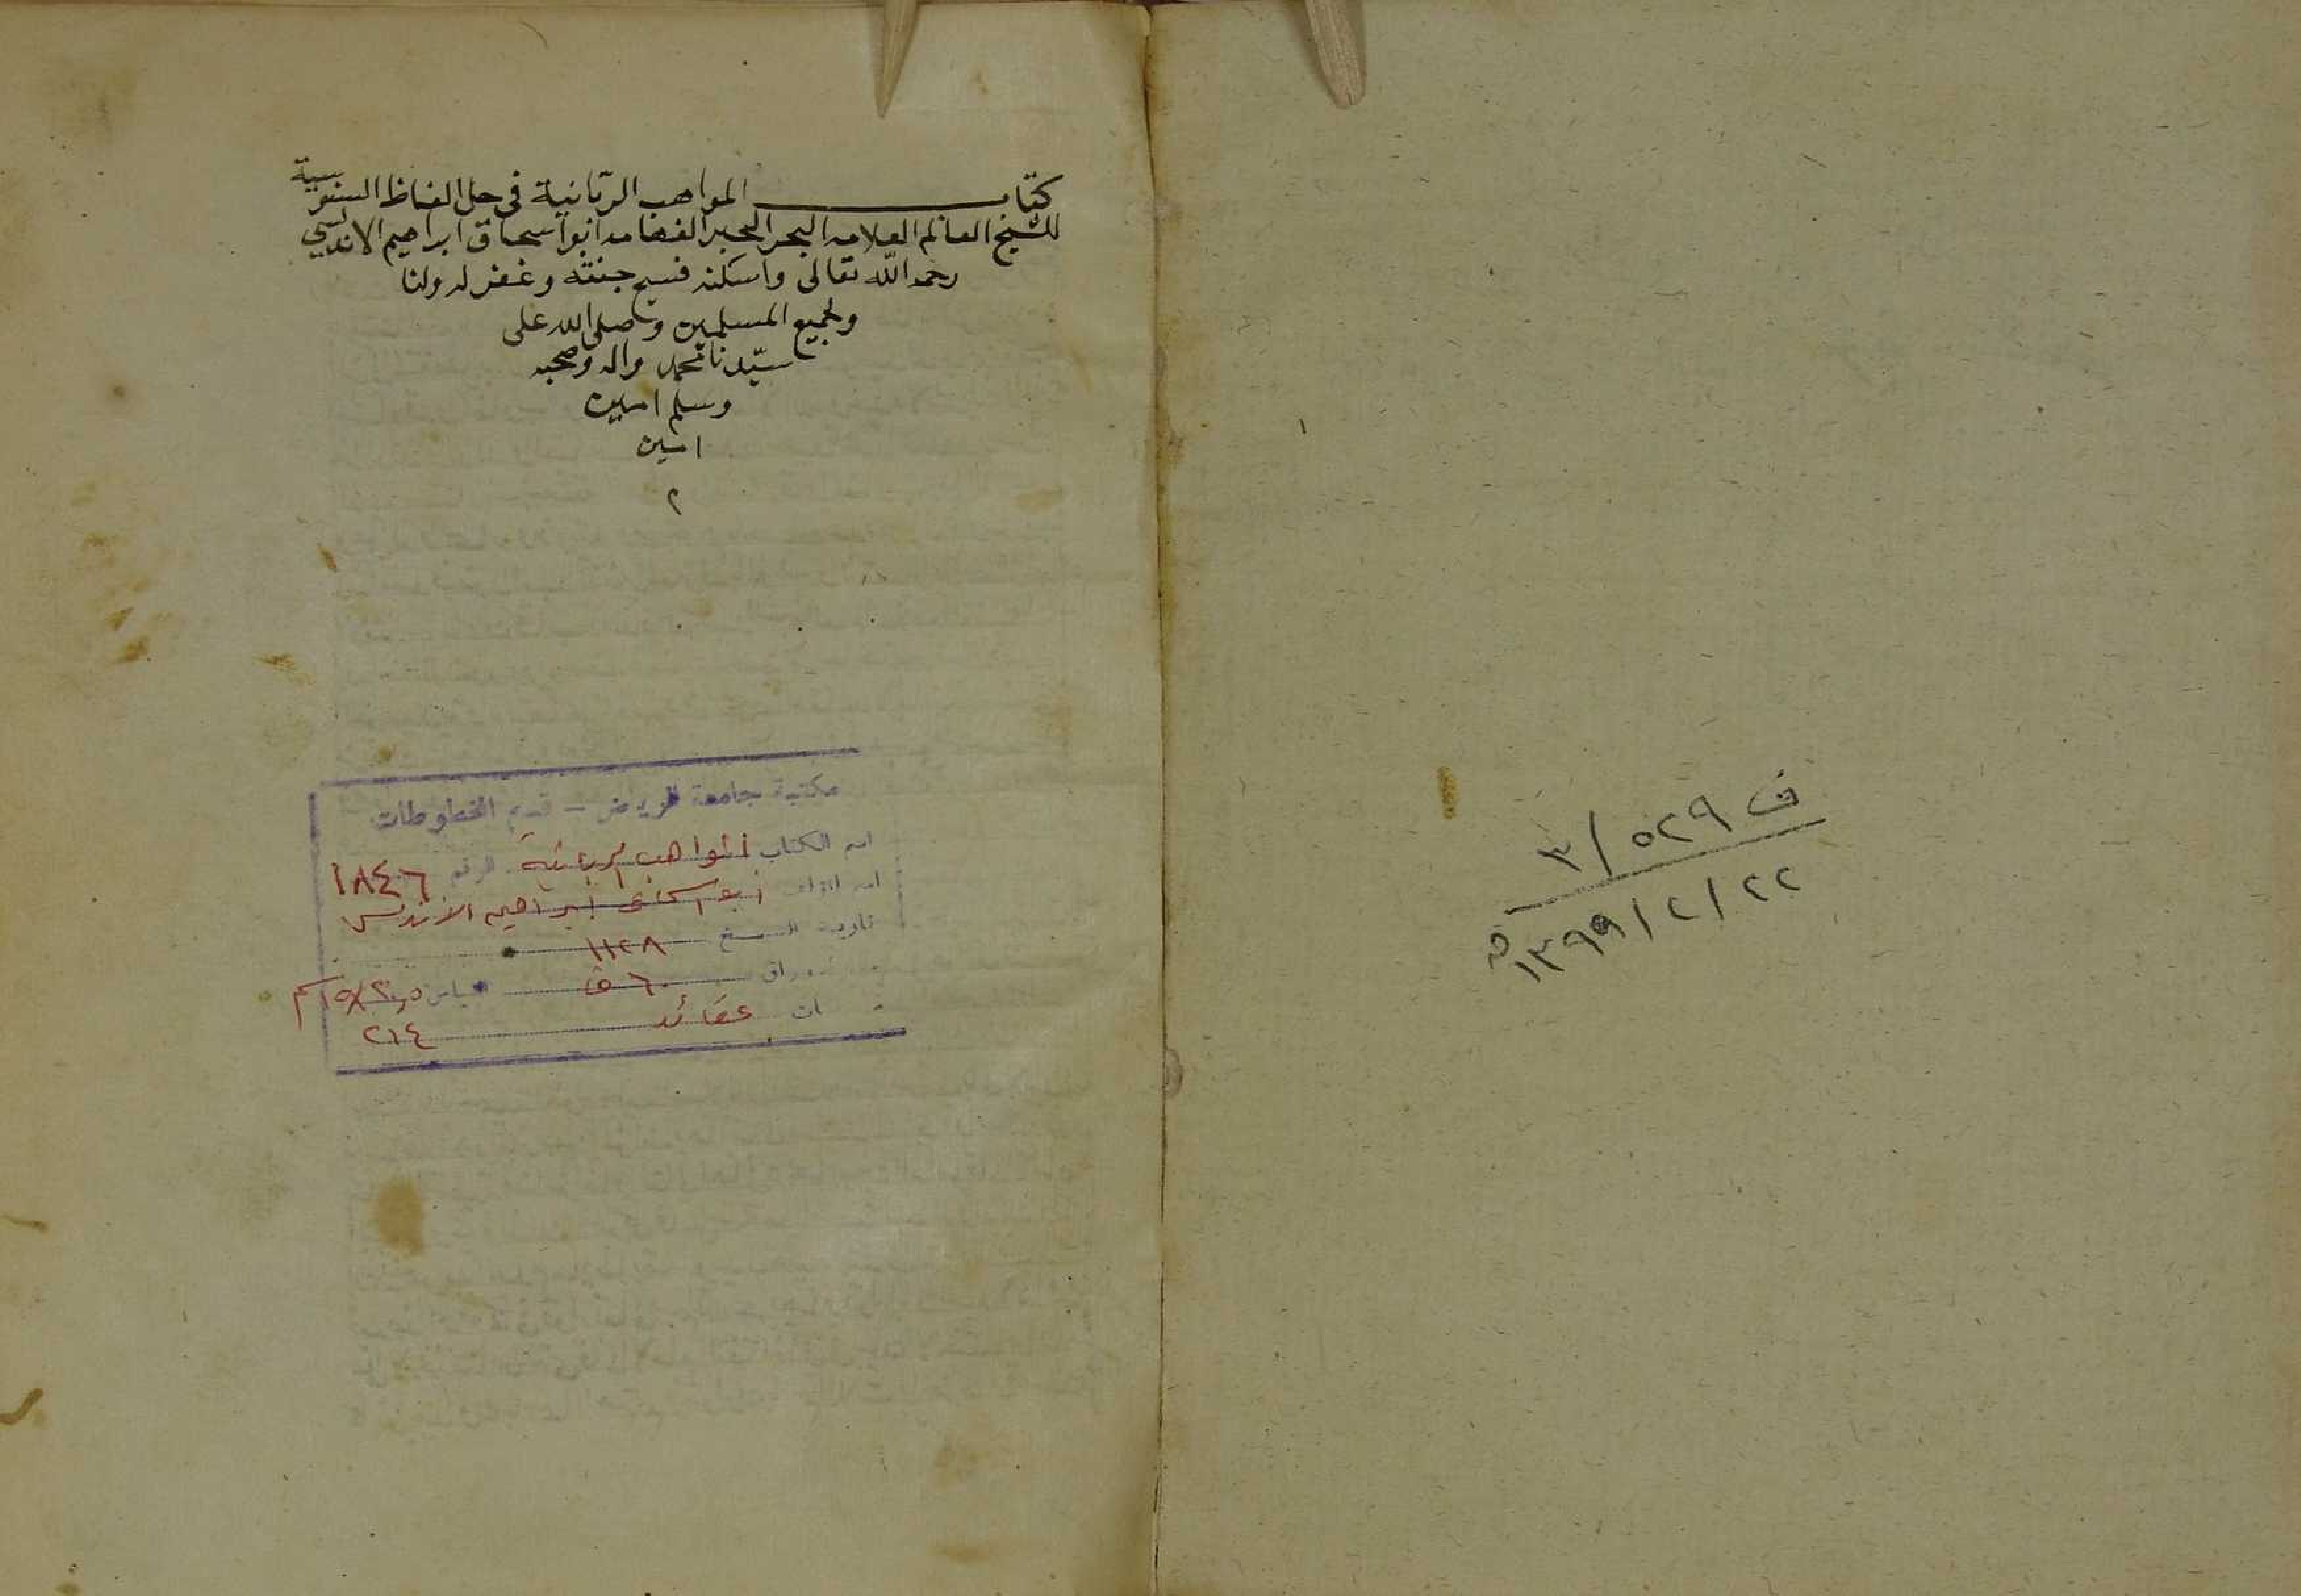 ف ٥٢٩ / ٣
٢٢ / ٢ / ١٣٩٩ هـ
كتاب المواهب الربانية في حل الفاظ السنوسية
للشيخ العالم العلامه البحر الحبر الفهامه ابو اسحاق ابراهيم الاندلسي
رحمه الله تعالى واسكنه فسيح جنته وغفر له ولنا
ولجميع المسلمين وصلى الله على
سيدنا محمد واله وصحبه
وسلم امين
امين
م
مكتبة جامعة الرياض - قسم المخطوطات
اسم الكتاب المواهب الربانية الرقم ١٨٤٦
اسم المؤلف ابو اسحاق ابراهيم الاندلسي
تاريخ النسخ ١١٢٨
٦٠ ق
عقائد ٢١٤